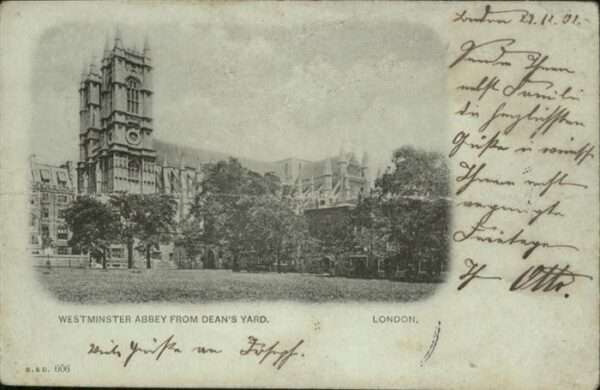 London 22.12.02.
Sende Ihnen
nebst Familie
die herzlichsten
Grüße u wünsche
Ihnen recht
vergnügte
Feiertage
Ihr Otto.
WESTMINSTER ABBEY FROM DEAN'S YARD. LONDON.
Viele Grüße an Joseph.
606